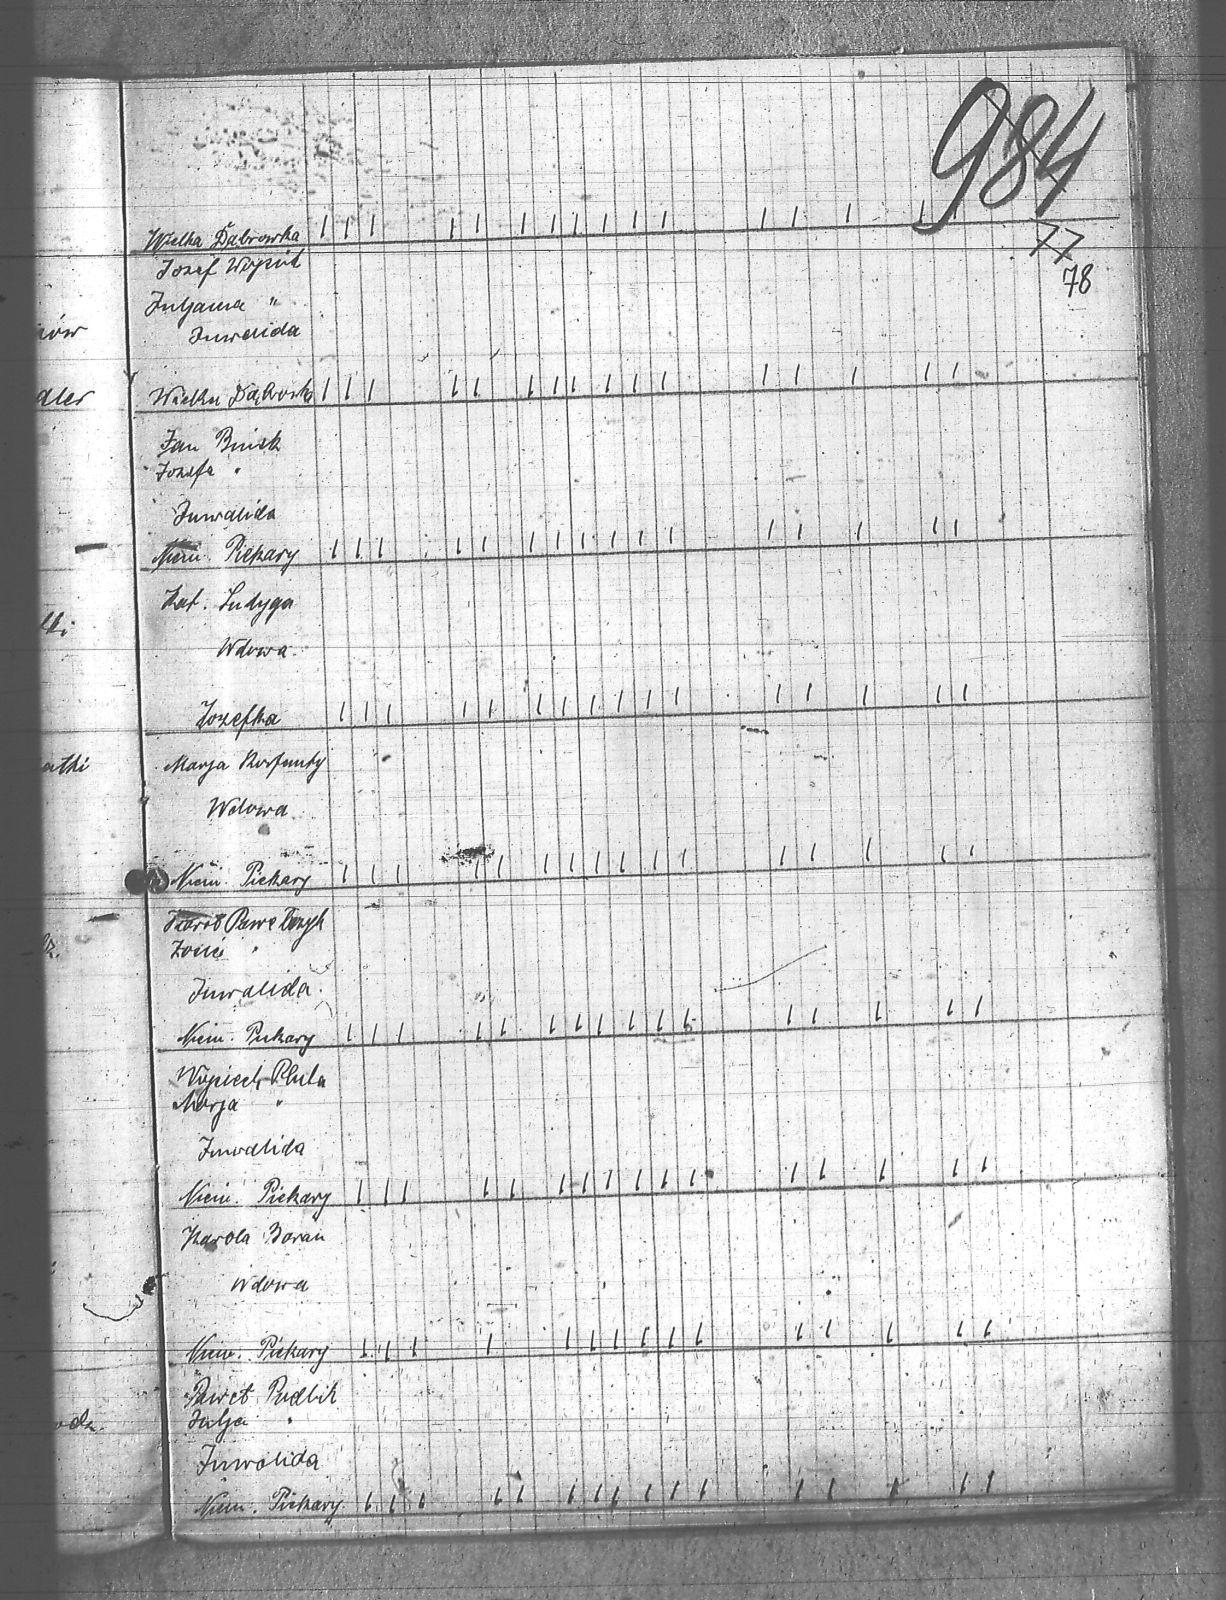 984
77
78
Wielka Dąbrowka
Jozef Wojcik
Juljanna "
Inwalida
nów
Wielka Dąbrowka
dler
Jan
Jozefa "
Inwalida
Niem. Piekary
Kat. Ludyga
Wdowa
Jozefka
Marja Korfanty
atki
Wdowa
Niem. Piekary
Karol Pawełczyk
"
Inwalida
Niem. Piekary
Wojciech Pluta
Marja "
Inwalida
Niem. Piekary
Karola Baran
Wdowa
Niem. Piekary
Paweł Pudlik
Julja "
Inwalida
Niem. Piekary